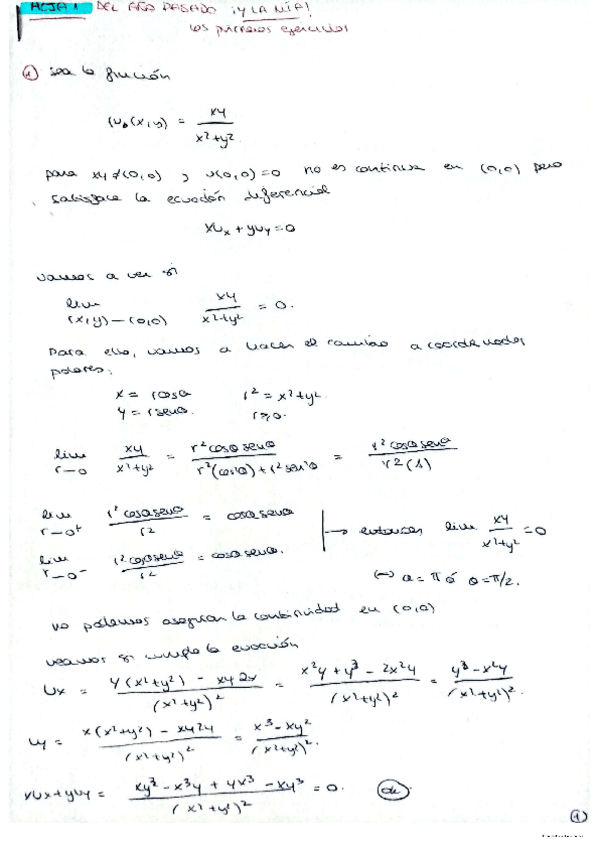 HOJA 1 DEL AÑO PASADO ¡Y LA MÍA!
Los primeros ejercicios
① Sea la función
u(x,y) = xy / x²+y²
para xy≠(0,0) , u(0,0)=0 no es continua en (0,0) pero
satisface la ecuación diferencial
xux + yuy = 0
vamos a ver si
lim (x,y)→(0,0) xy / x²+y² = 0.
Para ello, vamos a hacer el cambio a coordenadas
polares:
x = rcosθ r² = x²+y².
y = rsenθ. r≥0.
lim r→0 xy / x²+y² = r²cosθsenθ / r²(cos²θ)+r²sen²θ = r²cosθsenθ / r²(1)
lim r→0⁺ r²cosθsenθ / r² = cosθsenθ
lim r→0⁻ r²cosθsenθ / r² = cosθsenθ.
→ entonces lim xy / x²+y² = 0
⇔ θ=π ó θ=π/2.
no podemos asegurar la continuidad en (0,0)
veamos si cumple la ecuación
Ux = y(x²+y²) - xy2x / (x²+y²)² = x²y + y³ - 2x²y / (x²+y²)² = y³-x²y / (x²+y²)².
uy = x(x²+y²) - xy2y / (x²+y²)² = x³-xy² / (x²+y²)².
xux+yuy = xy³ - x³y + yx³ - xy³ / (x²+y²)² = 0. ok.
①